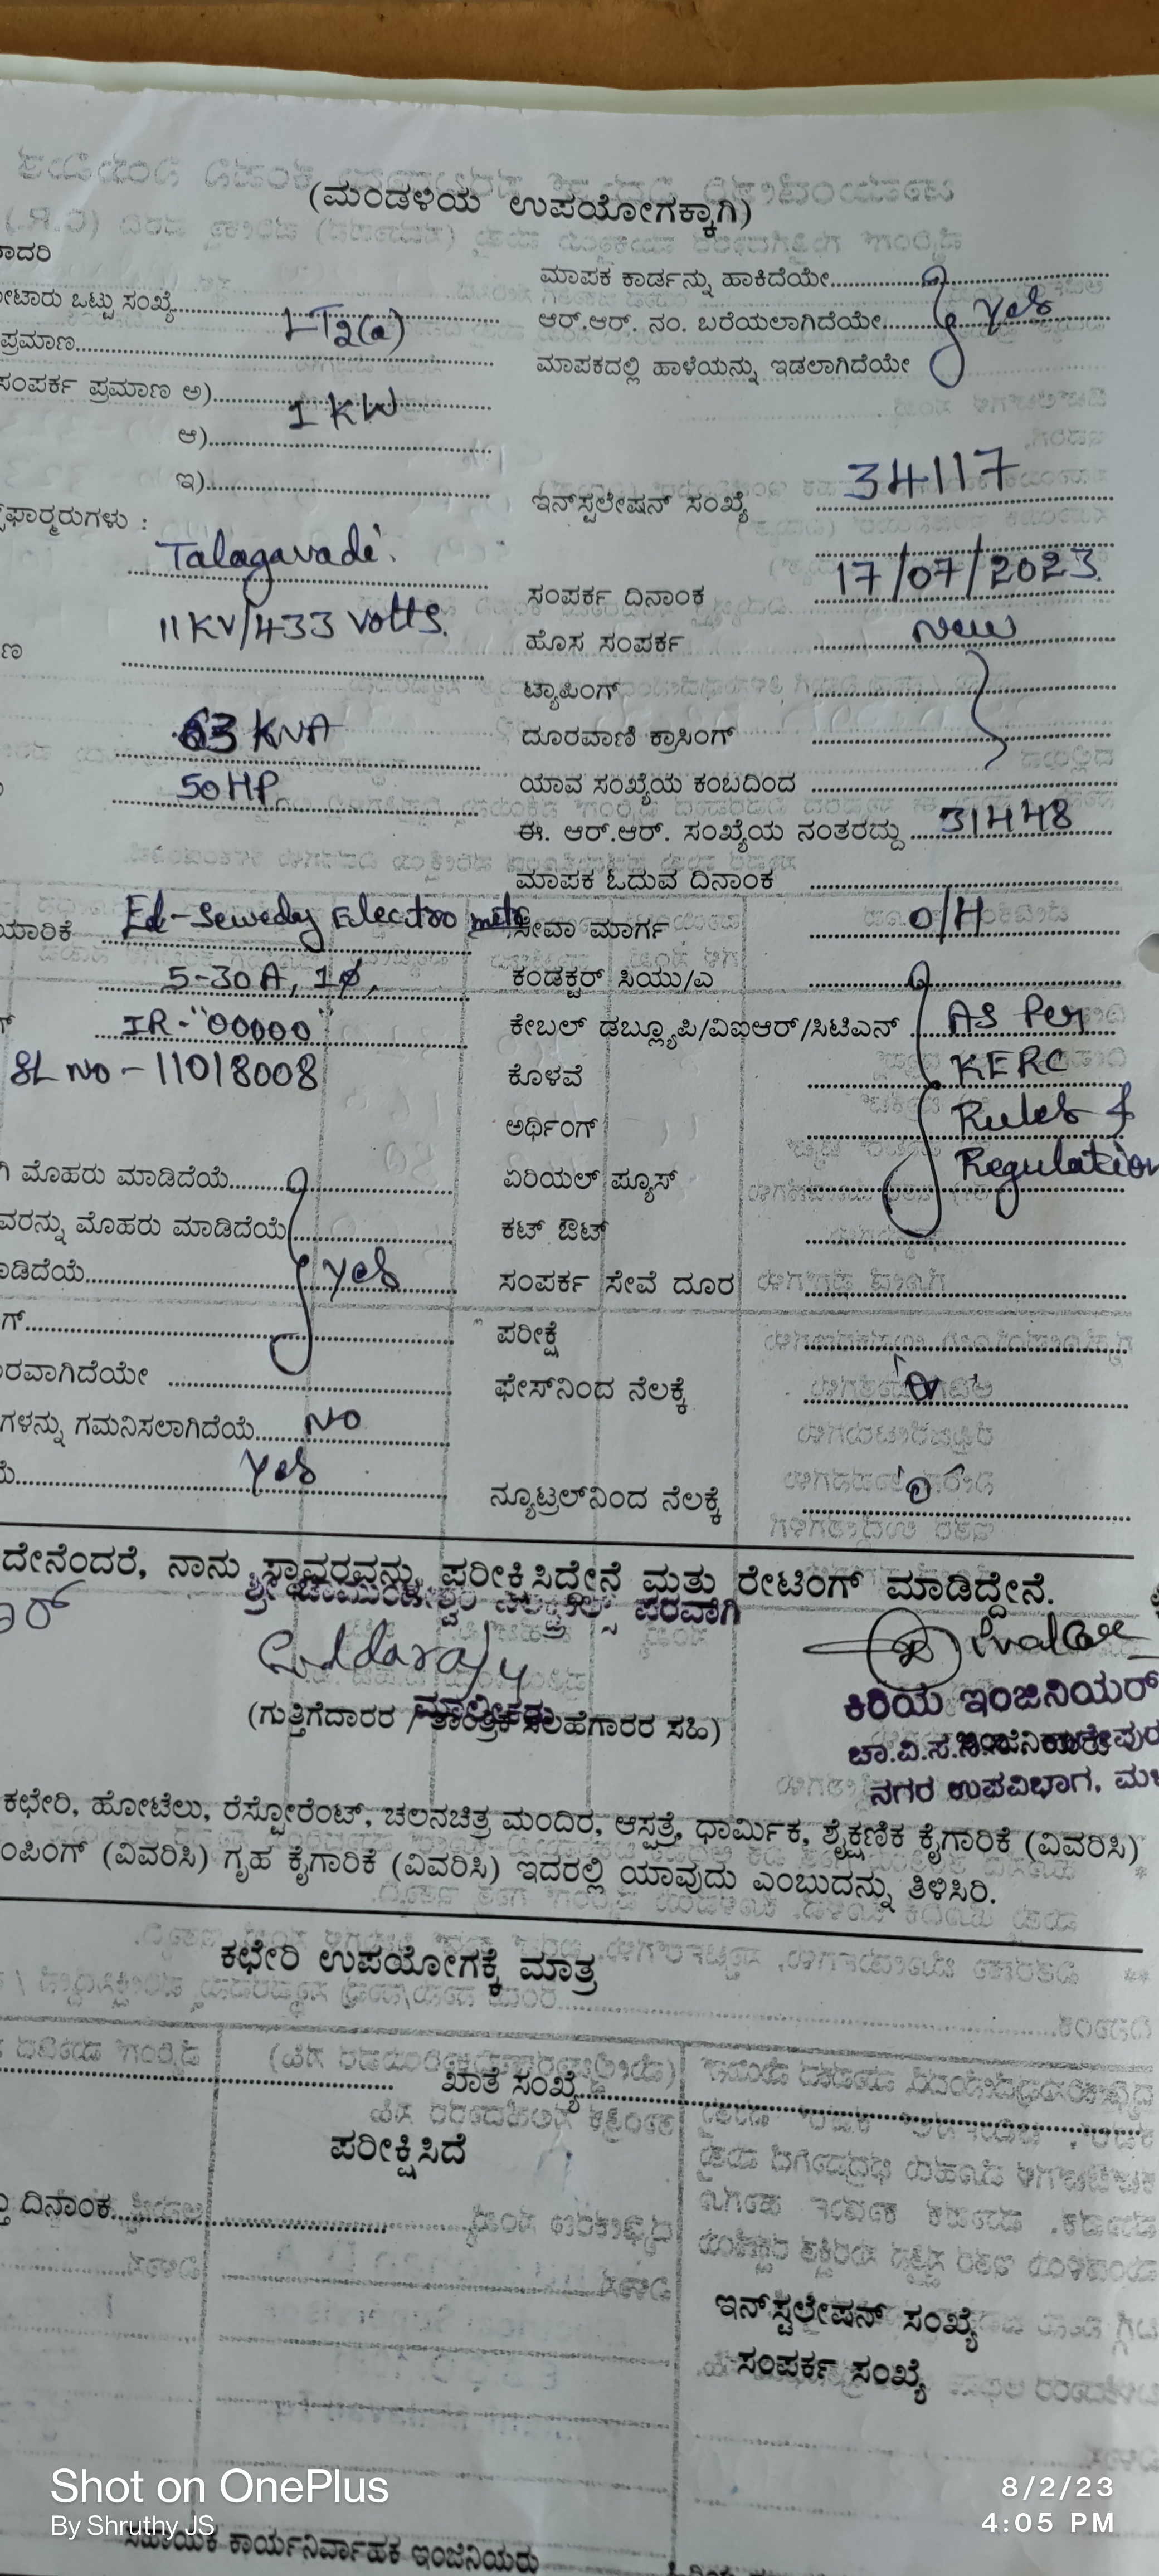 (ಮಂಡಳಿಯ ಉಪಯೋಗಕ್ಕಾಗಿ)
ಾದರಿ
ಮಾಪಕ ಕಾರ್ಡನ್ನು ಹಾಕಿದೆಯೇ
ೋಟಾರು ಒಟ್ಟು ಸಂಖ್ಯೆ
LT2(a)
ಆರ್.ಆರ್. ನಂ. ಬರೆಯಲಾಗಿದೆಯೇ
yes
ಪ್ರಮಾಣ
ಮಾಪಕದಲ್ಲಿ ಹಾಳೆಯನ್ನು ಇಡಲಾಗಿದೆಯೇ
ಸಂಪರ್ಕ ಪ್ರಮಾಣ ಅ) 1 KW
ಆ)
ಇ)
ಇನ್‌ಸ್ಟಲೇಷನ್ ಸಂಖ್ಯೆ 34117
ಫಾರ್ಮರುಗಳು :
Talagavadi
ಸಂಪರ್ಕ ದಿನಾಂಕ 17/07/2023
11KV/433 Volts.
ಹೊಸ ಸಂಪರ್ಕ New
ಣ
ಟ್ಯಾಪಿಂಗ್
63 KVA
ದೂರವಾಣಿ ಕ್ರಾಸಿಂಗ್
50HP
ಯಾವ ಸಂಖ್ಯೆಯ ಕಂಬದಿಂದ
ಈ. ಆರ್.ಆರ್. ಸಂಖ್ಯೆಯ ನಂತರದ್ದು 31448
ಮಾಪಕ ಓದುವ ದಿನಾಂಕ
ಯಾರಿಕೆ El-Sewedy Electro mete
ಸೇವಾ ಮಾರ್ಗ O/H
5-30A, 1ϕ,
ಕಂಡಕ್ಟರ್ ಸಿಯು/ಎ
IR-"00000"
ಕೇಬಲ್ ಡಬ್ಲ್ಯೂಪಿ/ವಿಐಆರ್/ಸಿಟಿಎನ್ As Per
SL No - 11018008
ಕೊಳವೆ KERC
ಅರ್ಥಿಂಗ್ Rules &
ಿ ಮೊಹರು ಮಾಡಿದೆಯೆ
ಏರಿಯಲ್ ಪ್ಯೂಸ್ Regulation
ವರನ್ನು ಮೊಹರು ಮಾಡಿದೆಯೆ
ಕಟ್ ಔಟ್
ಾಡಿದೆಯೆ yes
ಸಂಪರ್ಕ ಸೇವೆ ದೂರ
ಗ್
ಪರೀಕ್ಷೆ
ರವಾಗಿದೆಯೇ
ಫೇಸ್‌ನಿಂದ ನೆಲಕ್ಕೆ
ಗಳನ್ನು ಗಮನಿಸಲಾಗಿದೆಯೆ NO
ಯೆ Yes
ನ್ಯೂಟ್ರಲ್‌ನಿಂದ ನೆಲಕ್ಕೆ '0'
ದೇನೆಂದರೆ, ನಾನು ಸ್ಥಾವರವನ್ನು ಪರೀಕ್ಷಿಸಿದ್ದೇನೆ ಮತ್ತು ರೇಟಿಂಗ್ ಮಾಡಿದ್ದೇನೆ.
ಶ್ರೀ ಚಾಮುಂಡೇಶ್ವರಿ ಎಲೆಕ್ಟ್ರಿಕಲ್ಸ್ ಪರವಾಗಿ
ಮಾಲೀಕರು
(ಗುತ್ತಿಗೆದಾರರ / ತಾಂತ್ರಿಕ ಸಲಹೆಗಾರರ ಸಹಿ)
ಕಿರಿಯ ಇಂಜಿನಿಯರ್
ಚಾ.ವಿ.ಸ.ನಿ.ನಿ.
ನಗರ ಉಪವಿಭಾಗ,
ಕಛೇರಿ, ಹೋಟೆಲು, ರೆಸ್ಟೋರೆಂಟ್, ಚಲನಚಿತ್ರ ಮಂದಿರ, ಆಸ್ಪತ್ರೆ, ಧಾರ್ಮಿಕ, ಶೈಕ್ಷಣಿಕ ಕೈಗಾರಿಕೆ (ವಿವರಿಸಿ)
ಂಪಿಂಗ್ (ವಿವರಿಸಿ) ಗೃಹ ಕೈಗಾರಿಕೆ (ವಿವರಿಸಿ) ಇದರಲ್ಲಿ ಯಾವುದು ಎಂಬುದನ್ನು ತಿಳಿಸಿರಿ.
ಕಛೇರಿ ಉಪಯೋಗಕ್ಕೆ ಮಾತ್ರ
ಖಾತೆ ಸಂಖ್ಯೆ
ಪರೀಕ್ಷಿಸಿದೆ
ದಿನಾಂಕ
ಇನ್‌ಸ್ಟಲೇಷನ್ ಸಂಖ್ಯೆ
ಸಂಪರ್ಕ ಸಂಖ್ಯೆ
Shot on OnePlus
By Shruthy JS
8/2/23
4:05 PM
ಸಹಾಯಕ ಕಾರ್ಯನಿರ್ವಾಹಕ ಇಂಜಿನಿಯರು